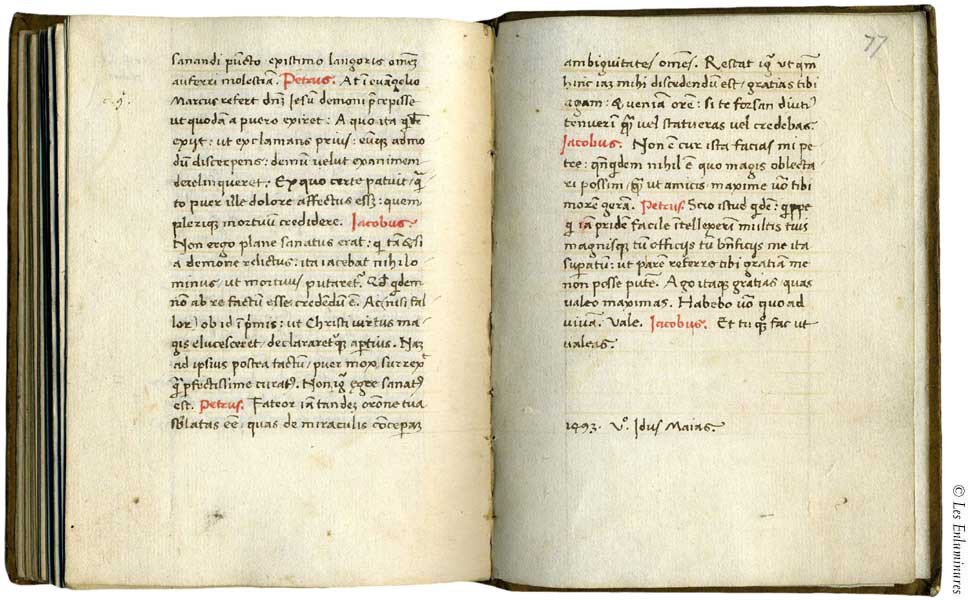 sanandi pūcto existimo langoris omēz
auferri molestiā. Petrus. At ī euāngelio
Marcus refert dn̄z Jesum demoni p̄cepisse
ut quodā a puero exiret: A quo ita qd̄
exijt: ut exclamans prius: eumq admo
dū discerpens: demū velut exanimem
derelinqueret. Ex quo certe patuit, q̄
to puer ille dolore affectus essz: quem
pleriq mortuum credidere. Jacobus.
Non ergo plane sanatus erat: qi tā & si
a demone relictus: ita iacebat nihilo
minus, ut mortuus putaret. Qd̄ qdem
nō ab re factū esse: credēdū ē. Ac (nisi fal
lor) ob id ī p̄mis: ut Christi virtus ma
gis elucesceret, declarareturq apertius. Nāz
ad ipsius postea tactum, puer mox surrexit
q̄ p̄fectissime curatꝰ. Non ig egre sanatꝰ
est. Petrus. Fateor iā tandez orōne tua
sublatas eē, quas de miraculis cōceperaz
77
ambiguitates omēs. Restat ig ut qm̄
hinc iaz mihi discedendū est, gratias tibi
agam: & ueniā orem: si te forsan diutiꝰ
tenverim q̄ vel statueras vel credebas.
Jacobus. Non ē cur ista facias mi pe
tre: qn̄qdem nihil ē quo magis oblecta
ri possim, q̄ ut amicis maxime uō tibi
morē gerā. Petrus. Scio istud qdē: qippe
qi iā pridē facile ītellexerī multis tuis
magnisq tū officijs tū bn̄ficijs me ita
supatum: ut parem referre tibi gratiam me
non posse putē. Ago itaq gratias, quas
valeo maximas. Habebo uō quo ad
vivā. Vale. Jacobus. Et tu qoq fac ut
valeas.
1493. Vº. Idus Maias.
© Les Enluminures